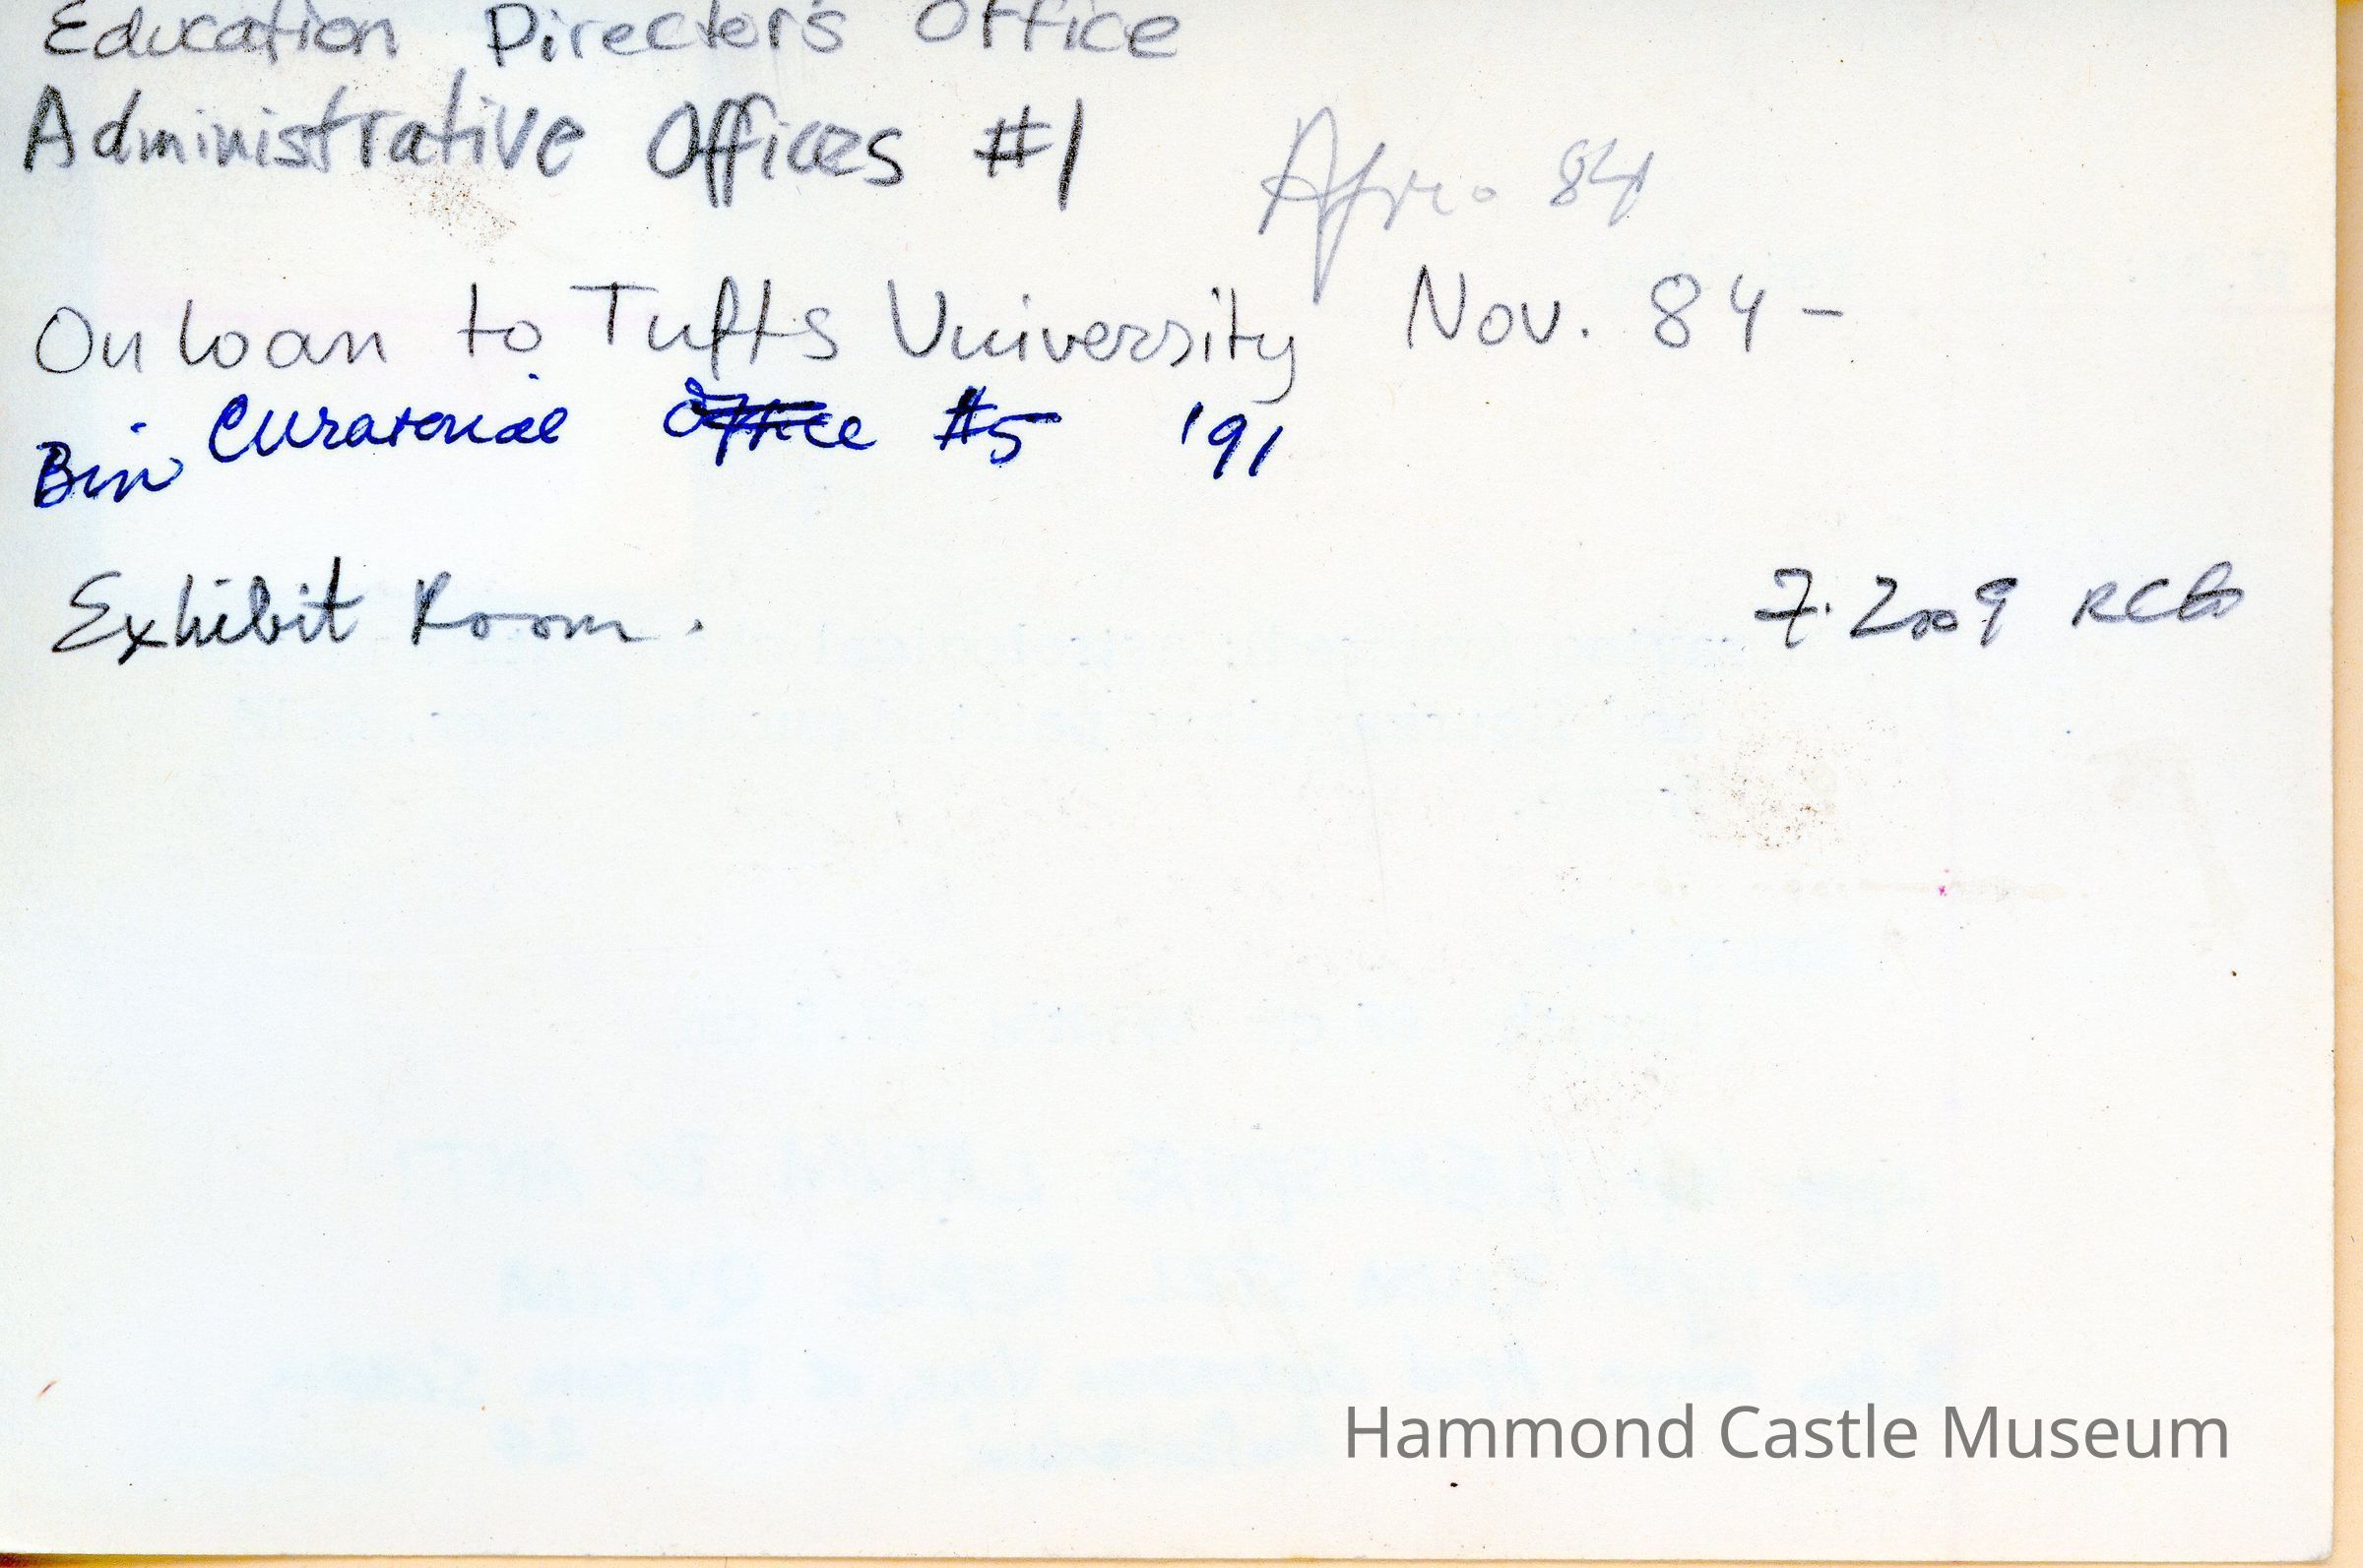 Education Director's Office
Administrative Offices #1
84
On loan to Tufts University Nov. 84 -
Bin Curatorial Office #5 '91
Exhibit Room. 7.2009
Hammond Castle Museum